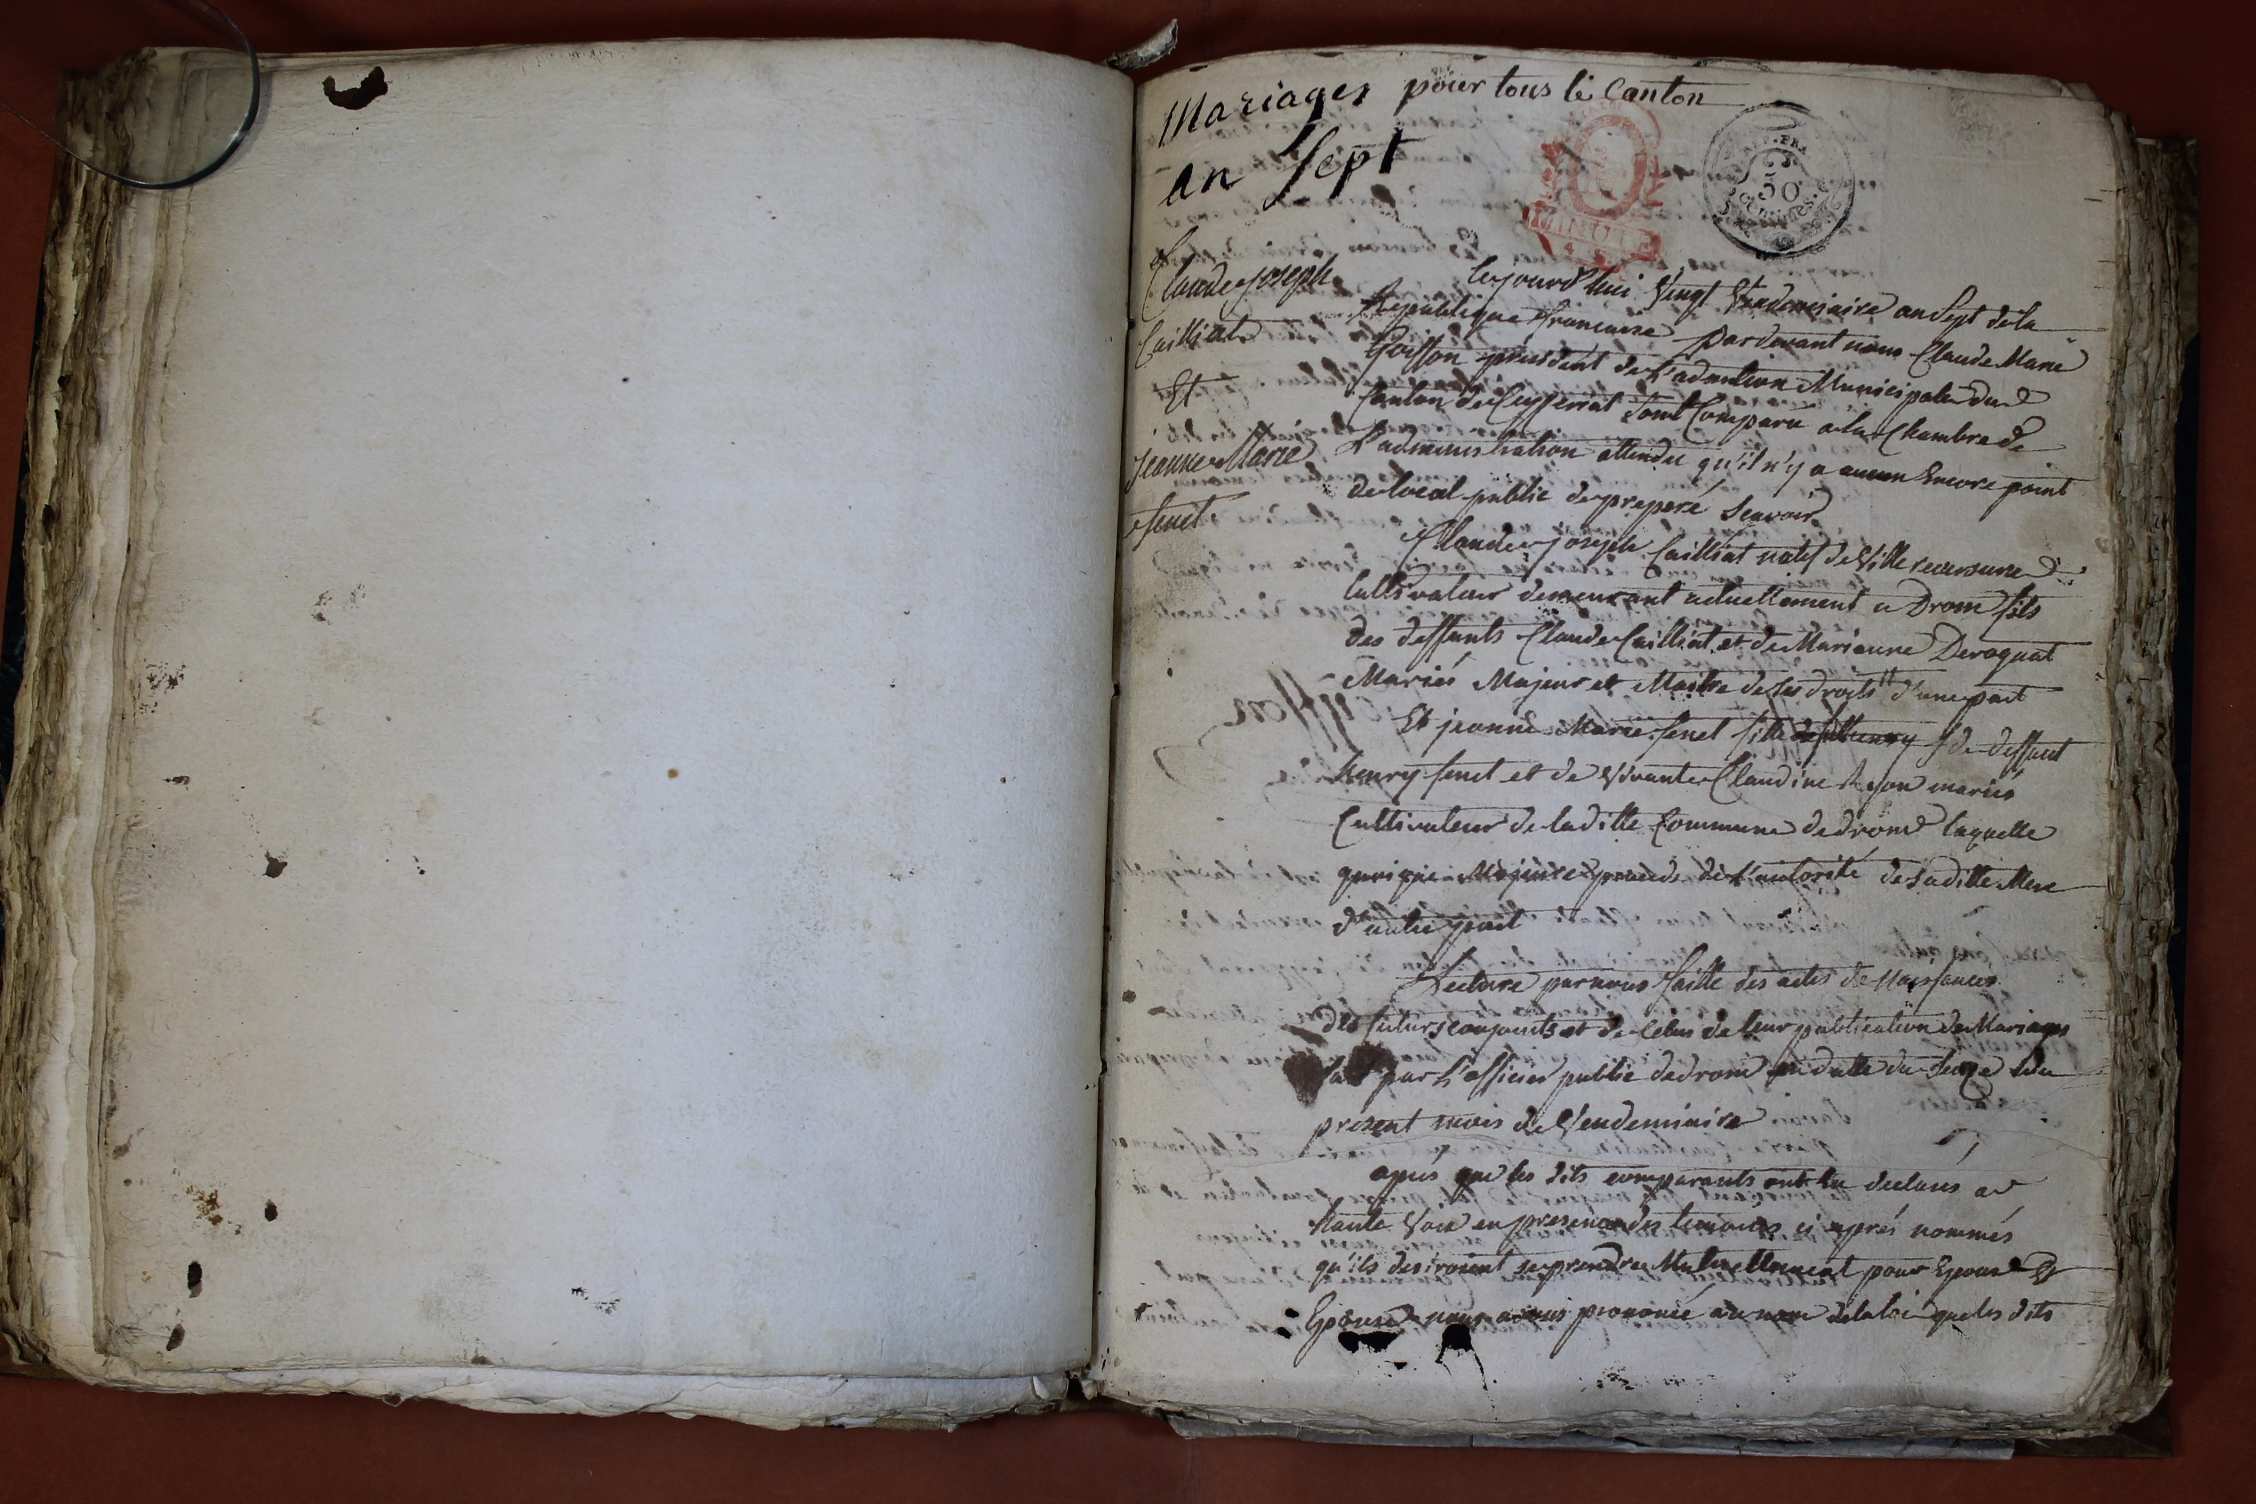 Mariages pour tous le Canton
an Sept
REP. FRA.
50
Centimes
MINUTE
Claude joseph
Cailliat
Et
jeanne Marie
fenet
Cejourd'hui Vingt Vendemiaire an Sept de la
Republique francaise pardevant nous Claude Marie
president de L'admution Municipale du
Canton de Ceyzeriat Sont Comparu a la Chambre de
L'administration attendu qu'il n'y a aucun Encore point
de local public de preparé Scavoir
Claude joseph Cailliat natif de Villereversure
Cultivateur demeurant actuellement a Drom fils
des deffunts Claude Cailliat et de Marianne Deroguat
Mariés Majeur et Maitre de ses droits d'une part
Et jeanne Marie fenet fille de de deffunt
henry fenet et de Vivante Claudine mariés
Cultivateur de laditte Commune de drom laquelle
quoique Majeure procede de L'autorité de saditte Mere
d'autre part
Lecture par nous faitte des actes de Naissances
des futurs conjoints et de Celui de leur publication de Mariages
fait par L'officier public de drom en datte du Seize du
present mois de Vendemiaire
aprés que les dits comparants ont declarés a
haute Voix en presence des temoins ci aprés nommés
qu'ils desiroient se prendre Mutuellement pour Epoux Et
Epouse nous avons prononcé au nom de la loi que les dits